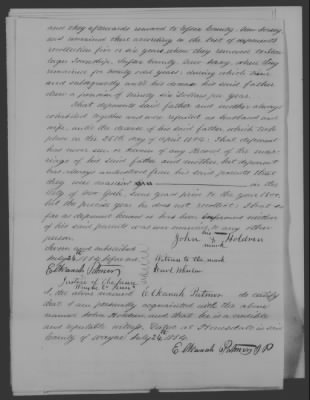 and they afterwards removed to Essex County, New Jersey,
and remained there according to the best of deponents
recollection five or six years, when they removed to
Township, Sussex County, New Jersey, where they
remained for twenty odd years: during which time
and subsequently until his decease his said father
drew a pension of ninety six dollars per year.
That deponents said father and mother always
cohabited together and were reputed as husband and
wife, until the decease of his said father which took
place on the 25th day of April 18 That deponent
has never seen or known of any record of the marr-
iage of his said father and mother, but deponent
has always understood from his said parents that
they were married in the
City of New York, some years prior to the year 1800,
but the precise year he does not recollect. That so
far as deponent knows or has been informed neither
of his said parents was ever married to any other
person.
his
John X Holdren
mark
Sworn and subscribed
July 24th 1854 before me
Witness to the mark
Elkanah Patmor
Justice of the Peace
Wayne Co. Penna
I, the above named Elkanah Patmor do certify
that I am personally acquainted with the above
named John Holdren, and that he is a credible
and reputable witness. Dated at Honesdale in said
County of Wayne July 24th 1854.
Elkanah Patmor J P